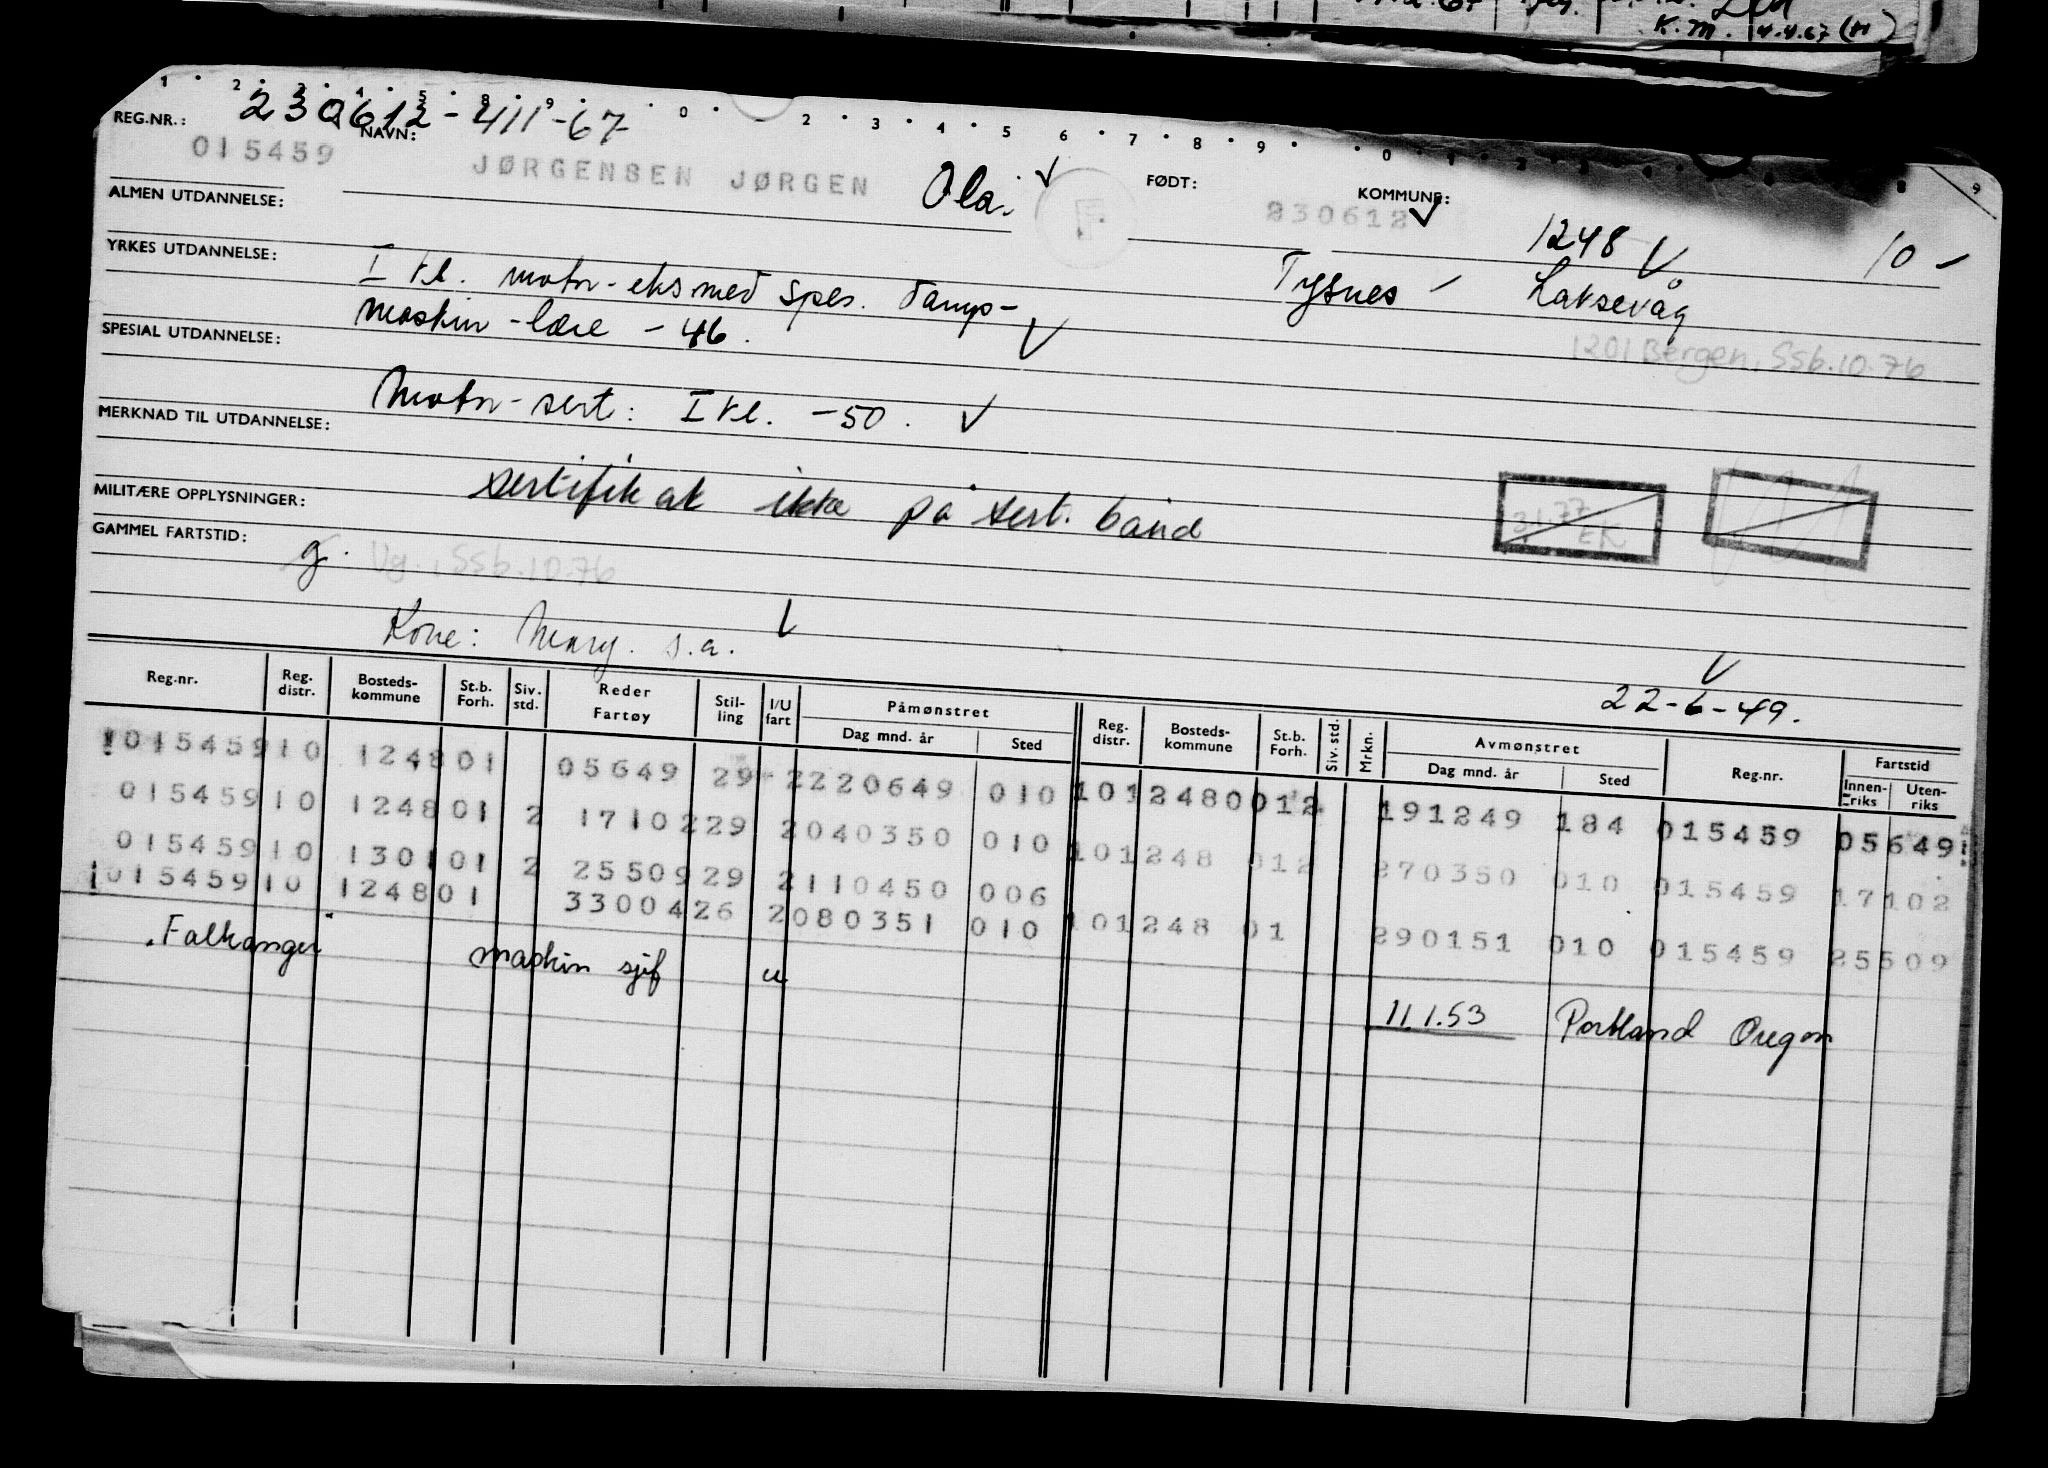 K.M. 4.4.67 (H)
1 2 3 4 5 8 9 0 2 3 4 5 6 7 8 9 0 1 2 3 8 9
REG.NR.: 230612-411-67
NAVN:
015459 JØRGENSEN JØRGEN Olai. FØDT: 230612 KOMMUNE:
ALMEN UTDANNELSE:
1248 10 -
YRKES UTDANNELSE: I kl. motor-eks med spes. damp- Tysnes Laksevåg
maskin-lære - 46.
1201 Bergen, Ssb.10.76
SPESIAL UTDANNELSE:
Motor-sert: I kl. -50.
MERKNAD TIL UTDANNELSE:
sertifikat ikke på sert. bånd
MILITÆRE OPPLYSNINGER:
3.1.77 EK
GAMMEL FARTSTID:
g. Ug., Ssb.10.76
Kone: Mary. s.a.
22-6-49.
Reg.nr. Reg. distr. Bosteds-kommune St.b. Forh. Siv. std. Reder Fartøy Stil-ling I/U fart Påmønstret Dag mnd. år Sted Reg. distr. Bosteds-kommune St.b. Forh. Siv. std. Mrkn. Avmønstret Dag mnd. år Sted Reg.nr. Fartstid Innen-riks Uten-riks
015459 10 1248 01 05649 29 2 220649 010 10 1248 0012 191249 184 015459 05649
015459 10 1248 01 2 17102 29 2 040350 010 10 1248 012 270350 010 015459 17102
015459 10 1301 01 2 25509 29 2 110450 006 10 1248 01 290151 010 015459 25509
015459 10 1248 01 33004 26 2 080351 010
"Falkanger" maskin sjef u 11.1.53 Portland Oregon